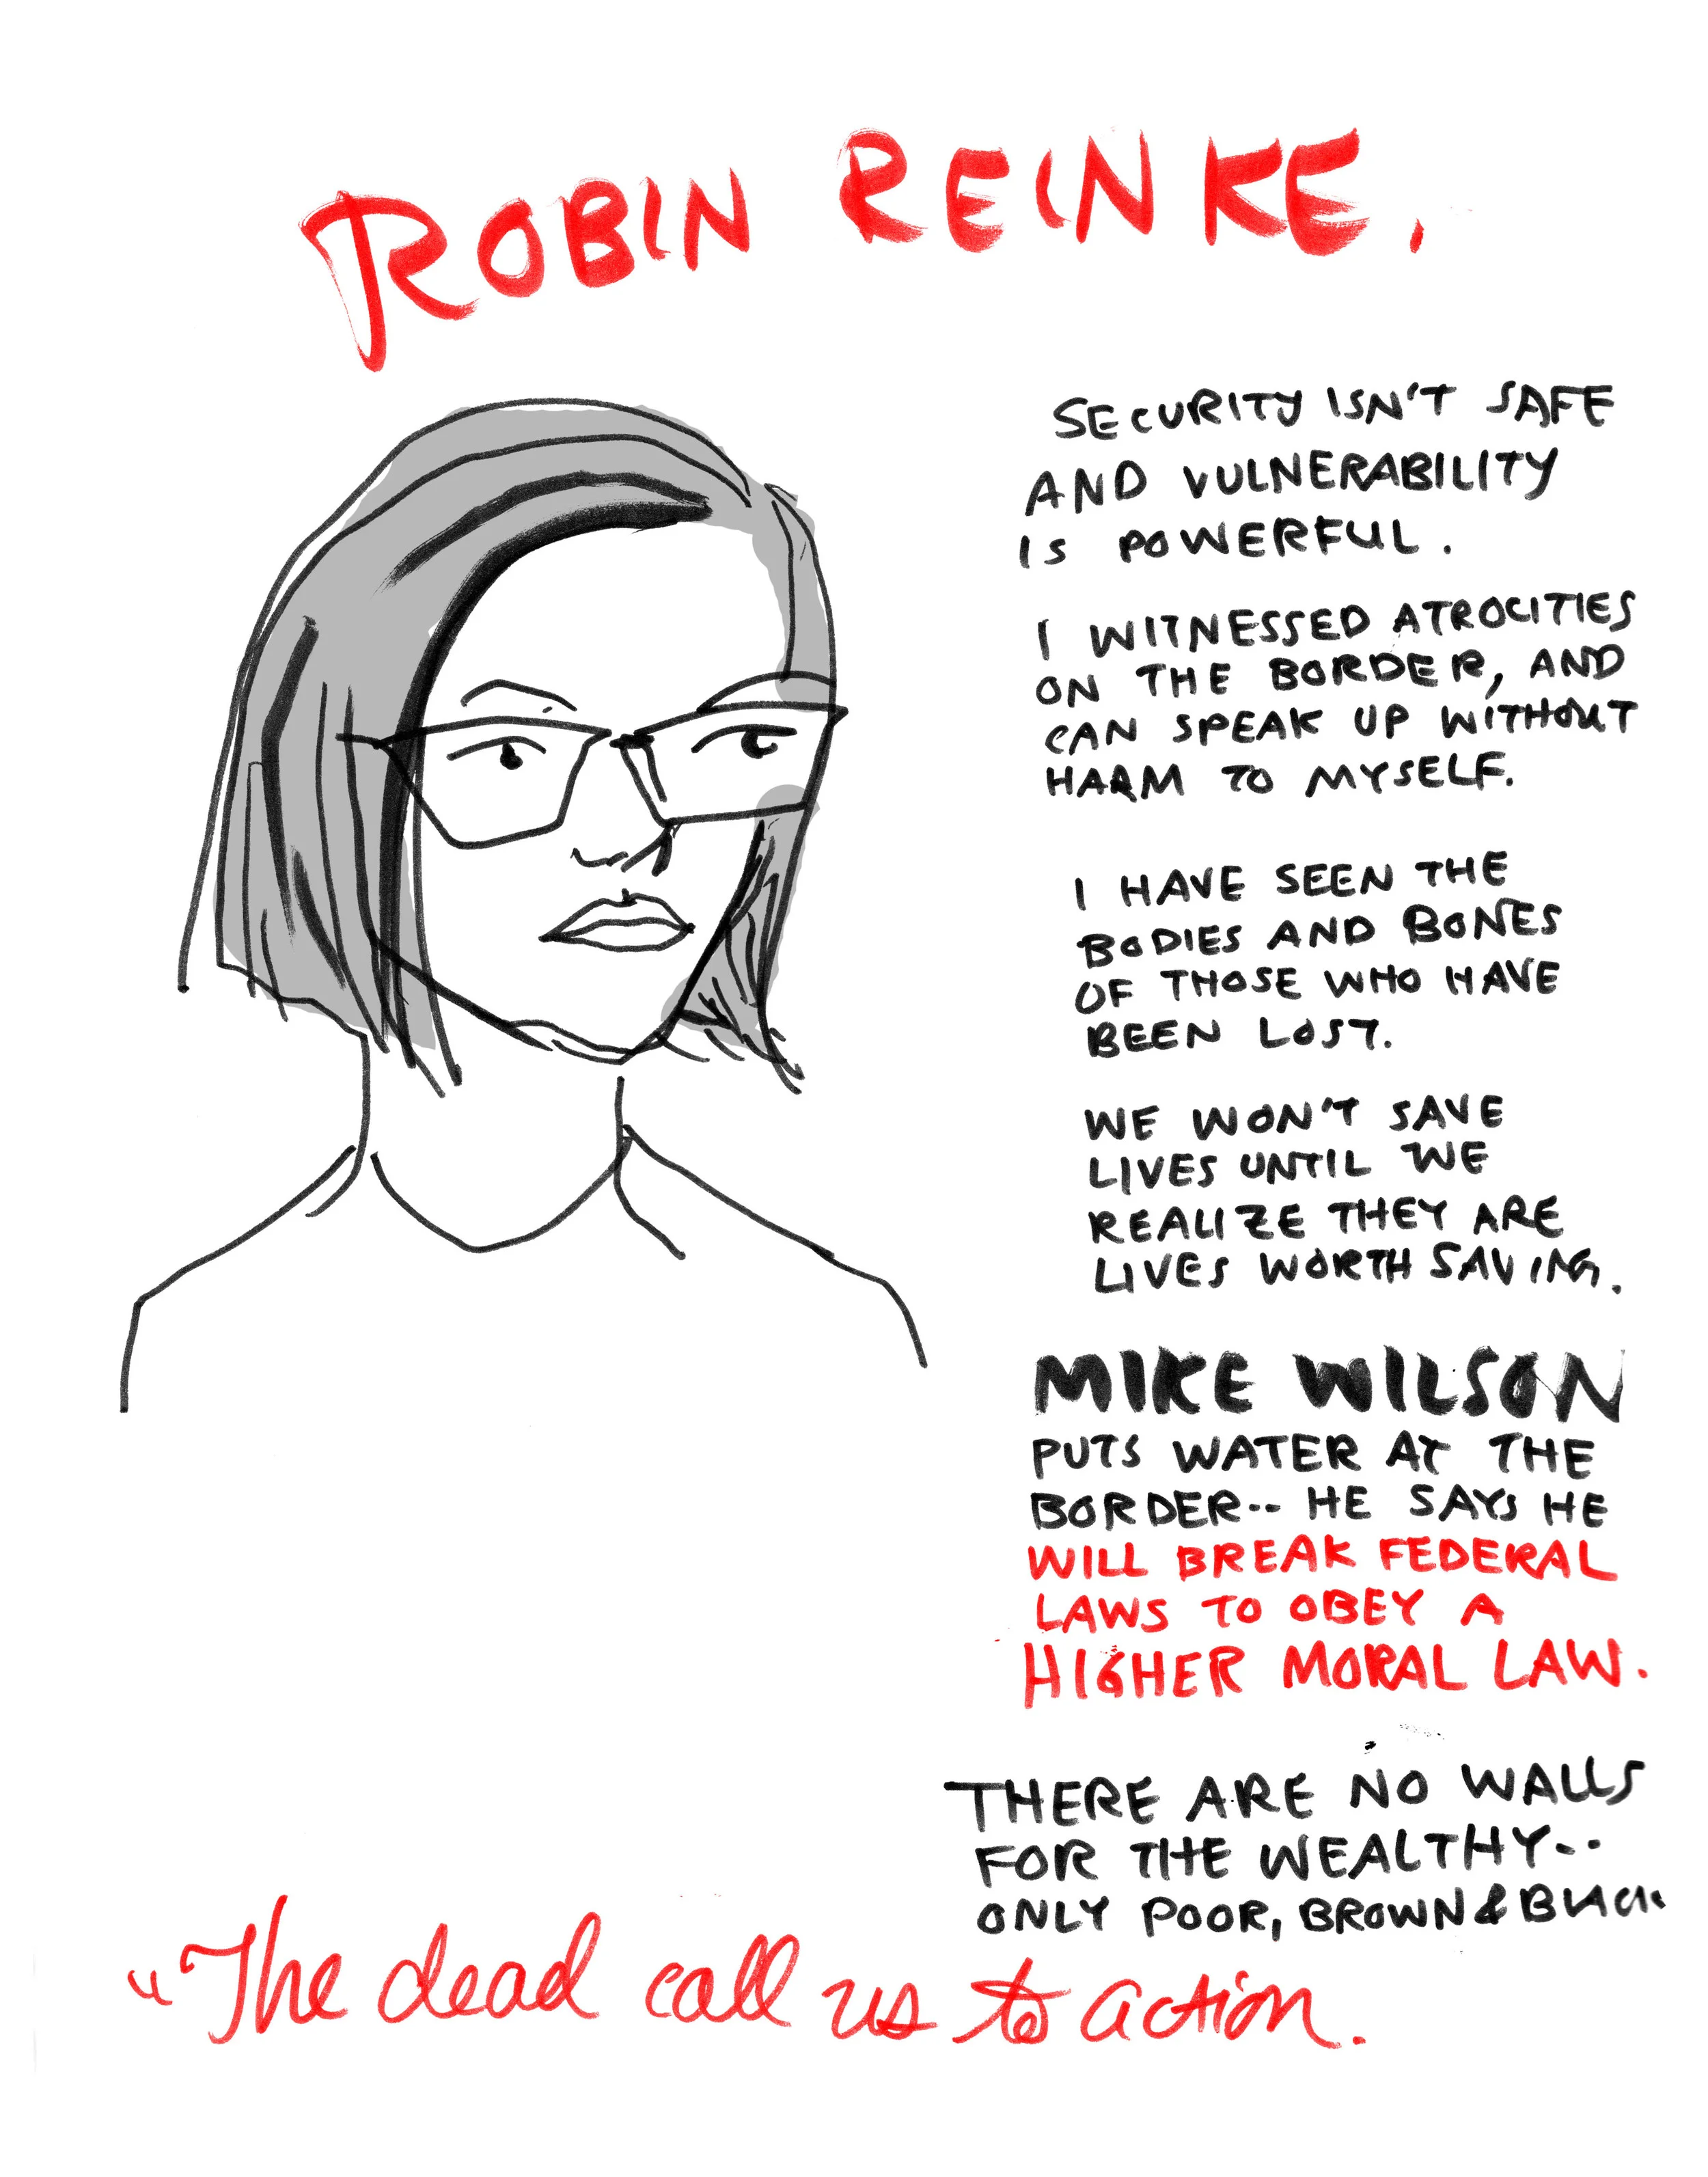 ROBIN REINKE.
SECURITY ISN'T SAFE
AND VULNERABILITY
IS POWERFUL.
I WITNESSED ATROCITIES
ON THE BORDER, AND
CAN SPEAK UP WITHOUT
HARM TO MYSELF.
I HAVE SEEN THE
BODIES AND BONES
OF THOSE WHO HAVE
BEEN LOST.
WE WON'T SAVE
LIVES UNTIL WE
REALIZE THEY ARE
LIVES WORTH SAVING.
MIKE WILSON
PUTS WATER AT THE
BORDER-- HE SAYS HE
WILL BREAK FEDERAL
LAWS TO OBEY A
HIGHER MORAL LAW.
THERE ARE NO WALLS
FOR THE WEALTHY--
ONLY POOR, BROWN & BLACK
"The dead call us to action.